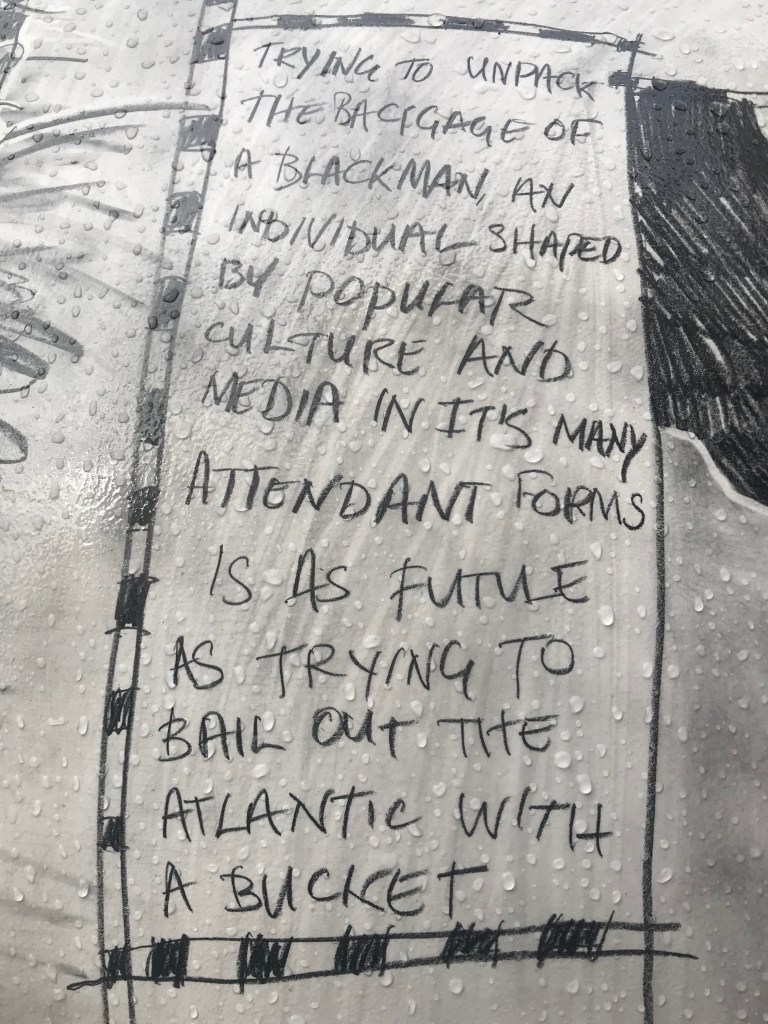 TRYING TO UNPACK
THE BACGGAGE OF
A BLACKMAN, AN
INDIVIDUAL SHAPED
BY POPULAR
CULTURE AND
MEDIA IN IT'S MANY
ATTENDANT FORMS
IS AS FUTILE
AS TRYING TO
BAIL OUT THE
ATLANTIC WITH
A BUCKET